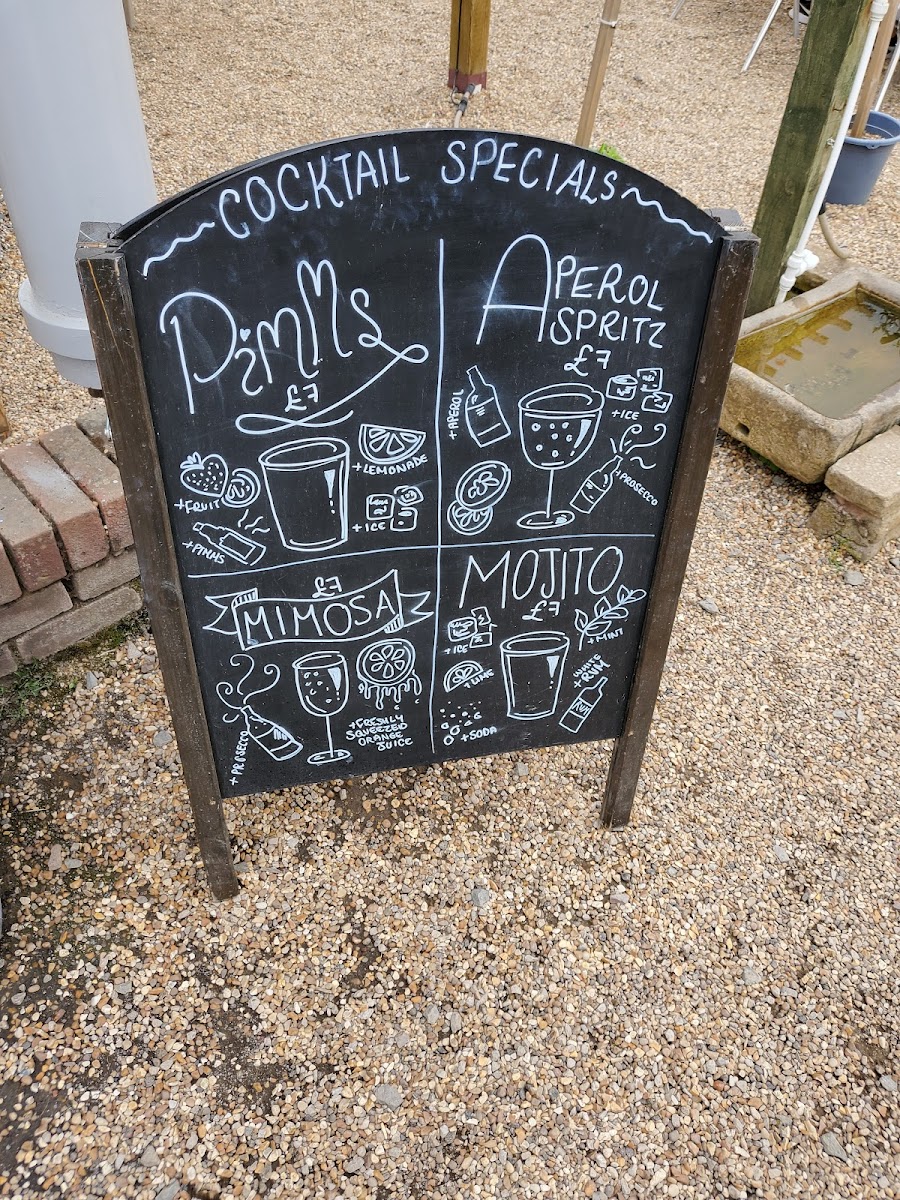 ~COCKTAIL SPECIALS~
PimMs
£7
+FRUIT
+PIMMS
+LEMONADE
+ICE
APEROL
SPRITZ
£7
+APEROL
+ICE
+PROSECCO
£7
MIMOSA
+PROSECCO
+FRESHLY
SQUEEZED
ORANGE
JUICE
MOJITO
£7
+ICE
+LIME
+SODA
+MINT
+WHITE
RUM
RUM